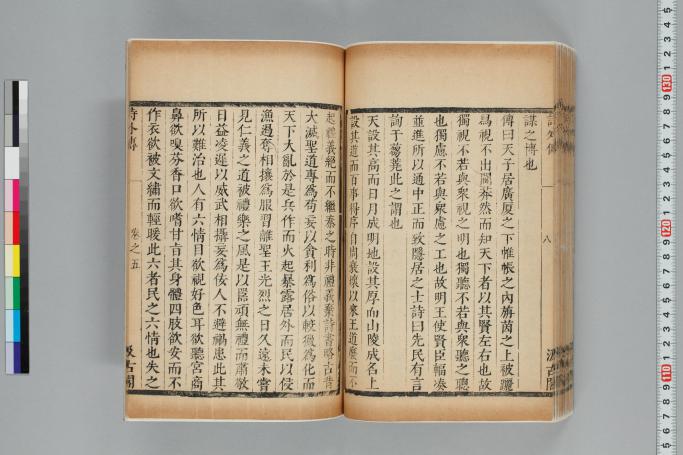 謀之博也
傳曰天子居廣厦之下帷帳之內旃茵之上被躧
舄視不出閫莽然而知天下者以其賢左右也故
獨視不若與衆視之明也獨聽不若與衆聽之聰
也獨慮不若與衆慮之工也故明王使賢臣輻奏
並進所以通中正而致隱居之士詩曰先民有言
詢于蒭蕘此之謂也
天設其高而日月成明地設其厚而山陵成名上
設其道而百事得序自周衰壞以來王道廢而不
起禮義絕而不繼秦之時非禮義棄詩書略古昔
大滅聖道專為苟妄以貪利為俗以較獵為化而
天下大亂於是兵作而火起暴露居外而民以侵
漁遏奪相攘為服習離聖王光烈之日久遠未嘗
見仁義之道被禮樂之風是以嚚頑無禮而肅敬
日益凌遲以威武相攝妄為佞人不避禍患此其
所以難治也人有六情目欲視好色耳欲聽宮商
鼻欲嗅芬香口欲嗜甘旨其身體四肢欲安而不
作衣欲被文繡而輕暖此六者民之六情也失之
詩外傳
卷之五
汲古閣